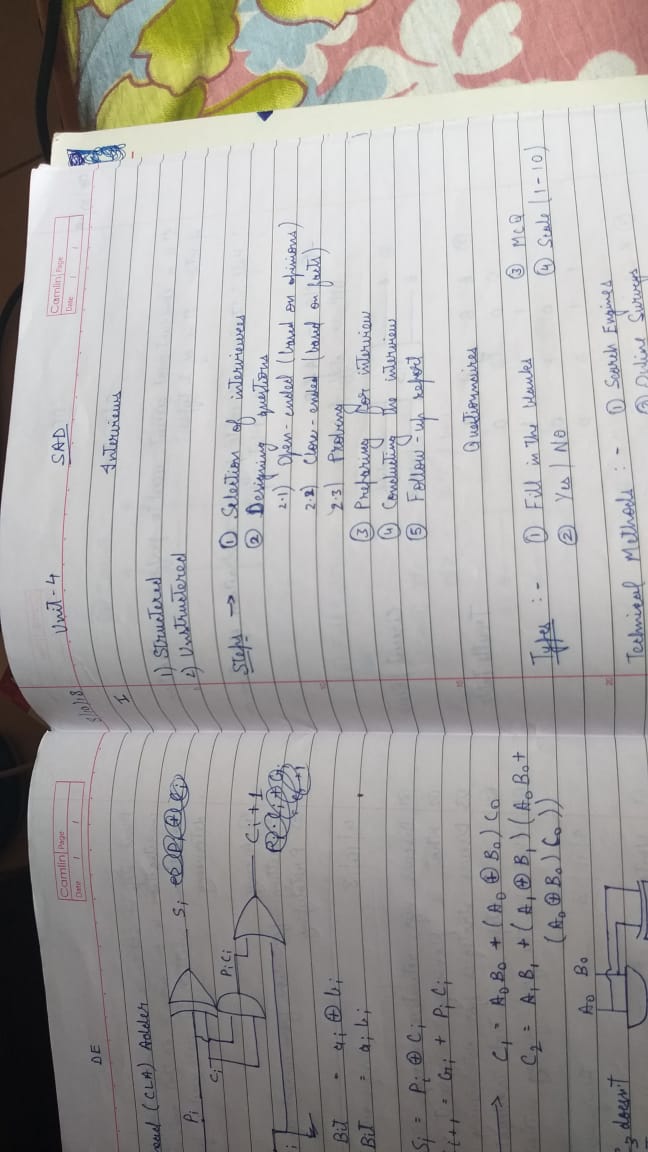 Camlin Page
Date / /
DE
(CLA) Adder
Pi
Si
Ci
PiCi
Ci+1
Bit = ai ⊕ bi
Bit = ai bi
Si = Pi ⊕ Ci
i+1 = Gi + Pi Ci
→ C1 = A0 B0 + (A0 ⊕ B0) C0
C2 = A1 B1 + (A1 ⊕ B1) (A0 B0 +
(A0 ⊕ B0) C0))
A0 B0
3 doesn't
Unit - 4 SAD
Camlin Page
Date / /
/10/18
I Interviews
1) Structered
2) Unstructered
Steps → ① Selection of interviewees
② Designing questions
2.1) Open-ended (based on opinions)
2.2) Close-ended (based on facts)
2.3) Probing
③ Preparing for interview
④ Conducting the interview
⑤ Follow-up report
Questionnaires
Types :- ① Fill in the blanks ③ MCQ
② Yes / NO ④ Scale (1-10)
Technical Methods :- ① Search Engines
② Online Surveys